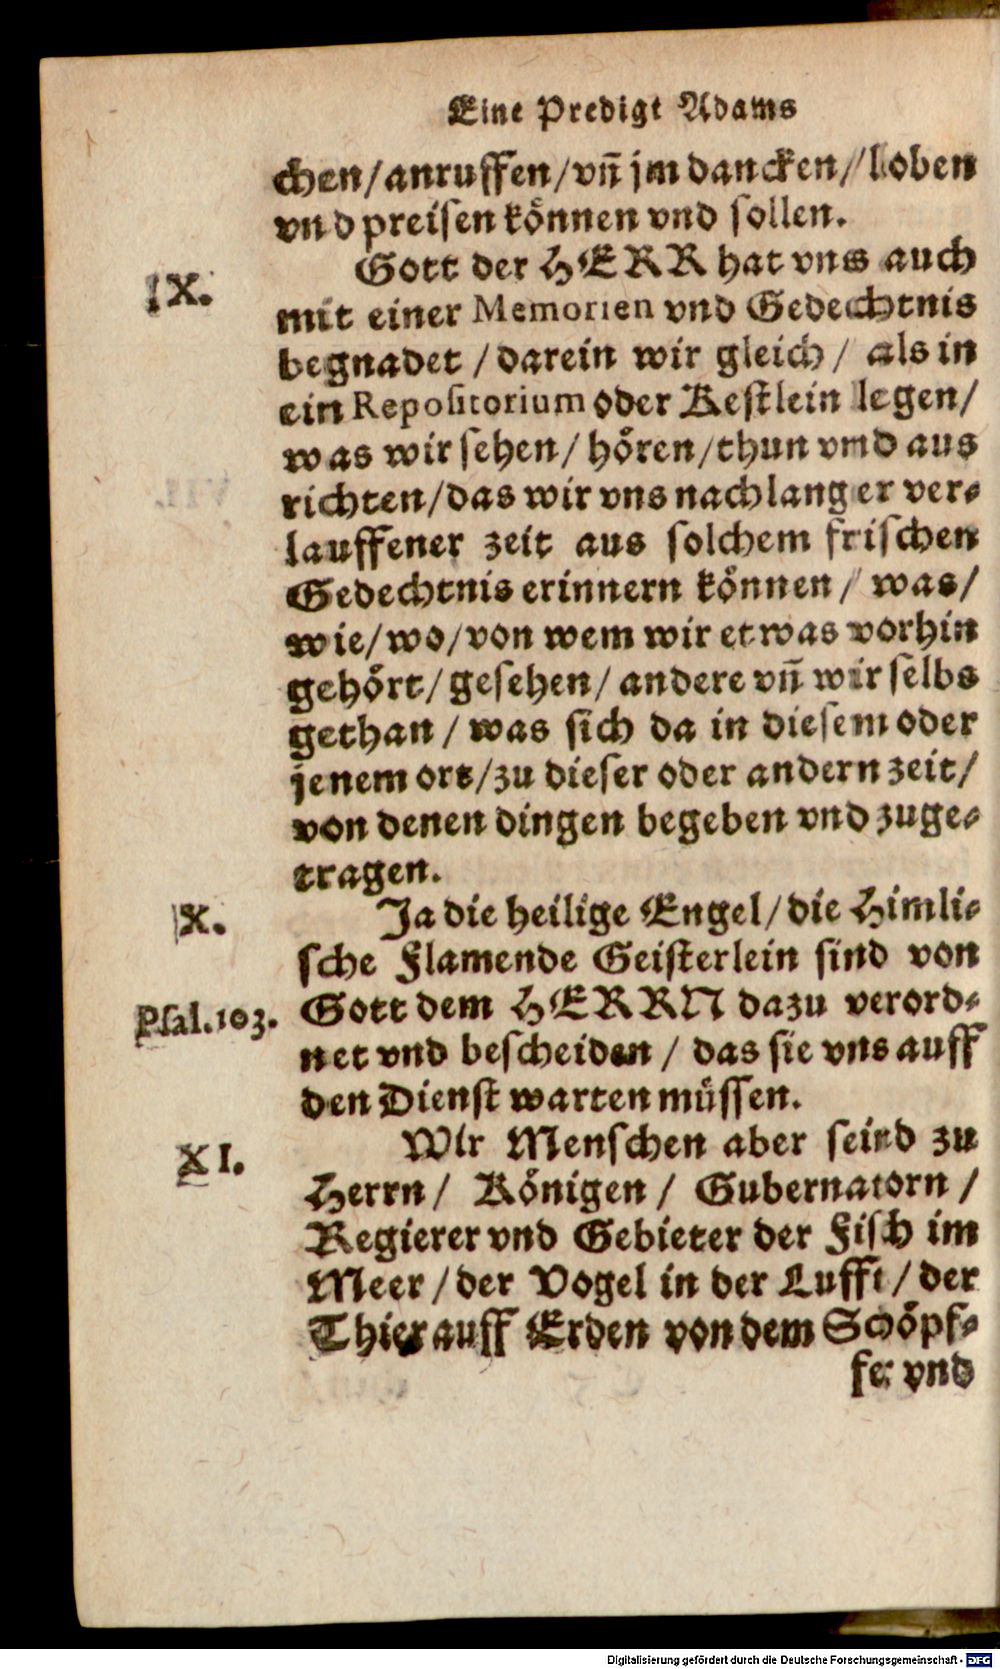 Eine Predigt Adams
chen/anruffen/vñ jm dancken/loben
vnd preisen können vnd sollen.
IX.
Gott der HERR hat vns auch
mit einer Memorien vnd Gedechtnis
begnadet / darein wir gleich / als in
ein Repositorium oder Kestlein legen/
was wir sehen / hören/thun vnd aus
richten/das wir vns nach langer ver-
lauffener zeit aus solchem frischen
Gedechtnis erinnern können / was/
wie/wo/von wem wir etwas vorhin
gehört/gesehen/andere vñ wir selbs
gethan / was sich da in diesem oder
jenem ort/zu dieser oder andern zeit/
von denen dingen begeben vnd zuge-
tragen.
X.
Ja die heilige Engel/die Himli-
sche Flamende Geisterlein sind von
Psal.103.
Gott dem HERRN dazu verord-
net vnd bescheiden / das sie vns auff
den Dienst warten müssen.
XI.
Wir Menschen aber seind zu
Herrn/ Königen / Gubernatorn /
Regierer vnd Gebieter der Fisch im
Meer / der Vogel in der Lufft / der
Thier auff Erden von dem Schöpf-
fer vnd
Digitalisierung gefördert durch die Deutsche Forschungsgemeinschaft - DFG